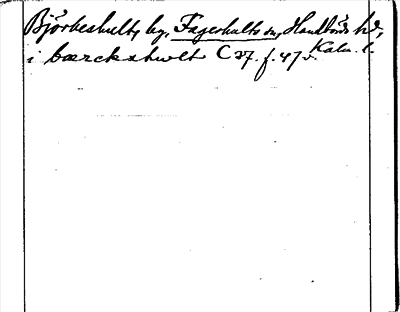 Björkeshult, by, Fagerhults sn, Handbörds hd,
Kalm. l.
i bærckshwlt C 27 f. 47 v.